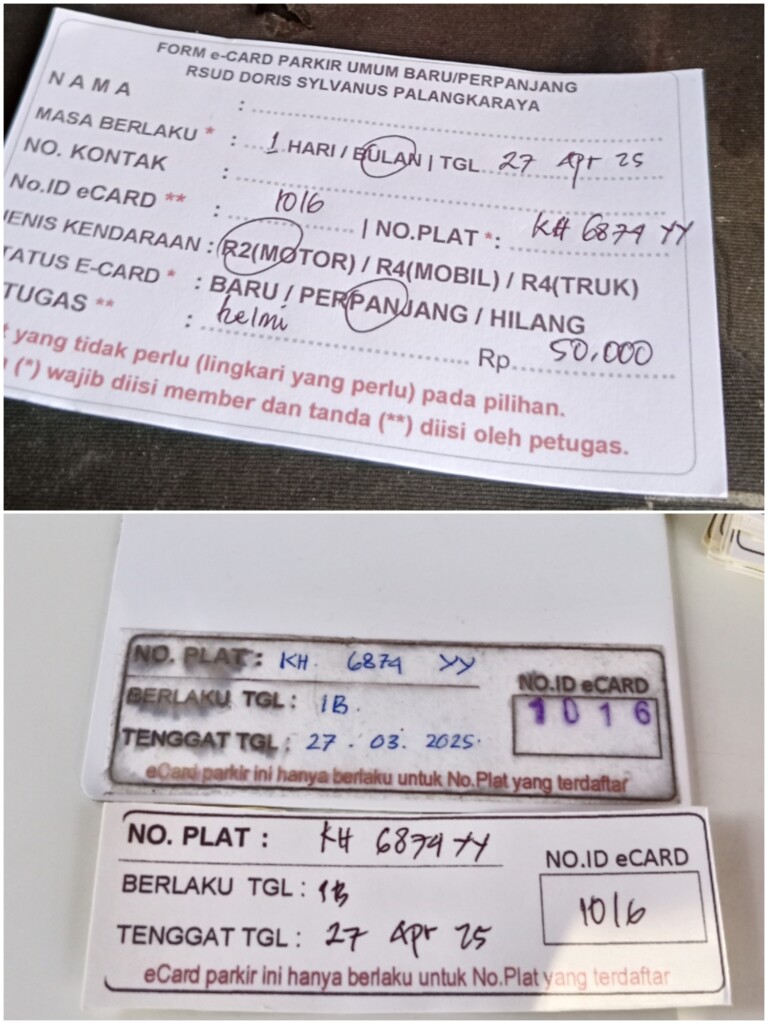 FORM e-CARD PARKIR UMUM BARU/PERPANJANG
RSUD DORIS SYLVANUS PALANGKARAYA
NAMA :
MASA BERLAKU * : 1 HARI / BULAN | TGL 27 Apr 25
NO. KONTAK :
No.ID eCARD ** : 1016 | NO.PLAT *: KH 6874 YY
JENIS KENDARAAN : R2(MOTOR) / R4(MOBIL) / R4(TRUK)
TATUS E-CARD * : BARU / PERPANJANG / HILANG
TUGAS ** : helmi Rp. 50.000
t yang tidak perlu (lingkari yang perlu) pada pilihan.
(*) wajib diisi member dan tanda (**) diisi oleh petugas.
NO. PLAT : KH 6874 YY
NO.ID eCARD
BERLAKU TGL : 1B.
1016
TENGGAT TGL : 27 . 03. 2025.
eCard parkir ini hanya berlaku untuk No.Plat yang terdaftar
NO. PLAT : KH 6874 YY
NO.ID eCARD
BERLAKU TGL : 1B
1016
TENGGAT TGL : 27 Apr 25
eCard parkir ini hanya berlaku untuk No.Plat yang terdaftar